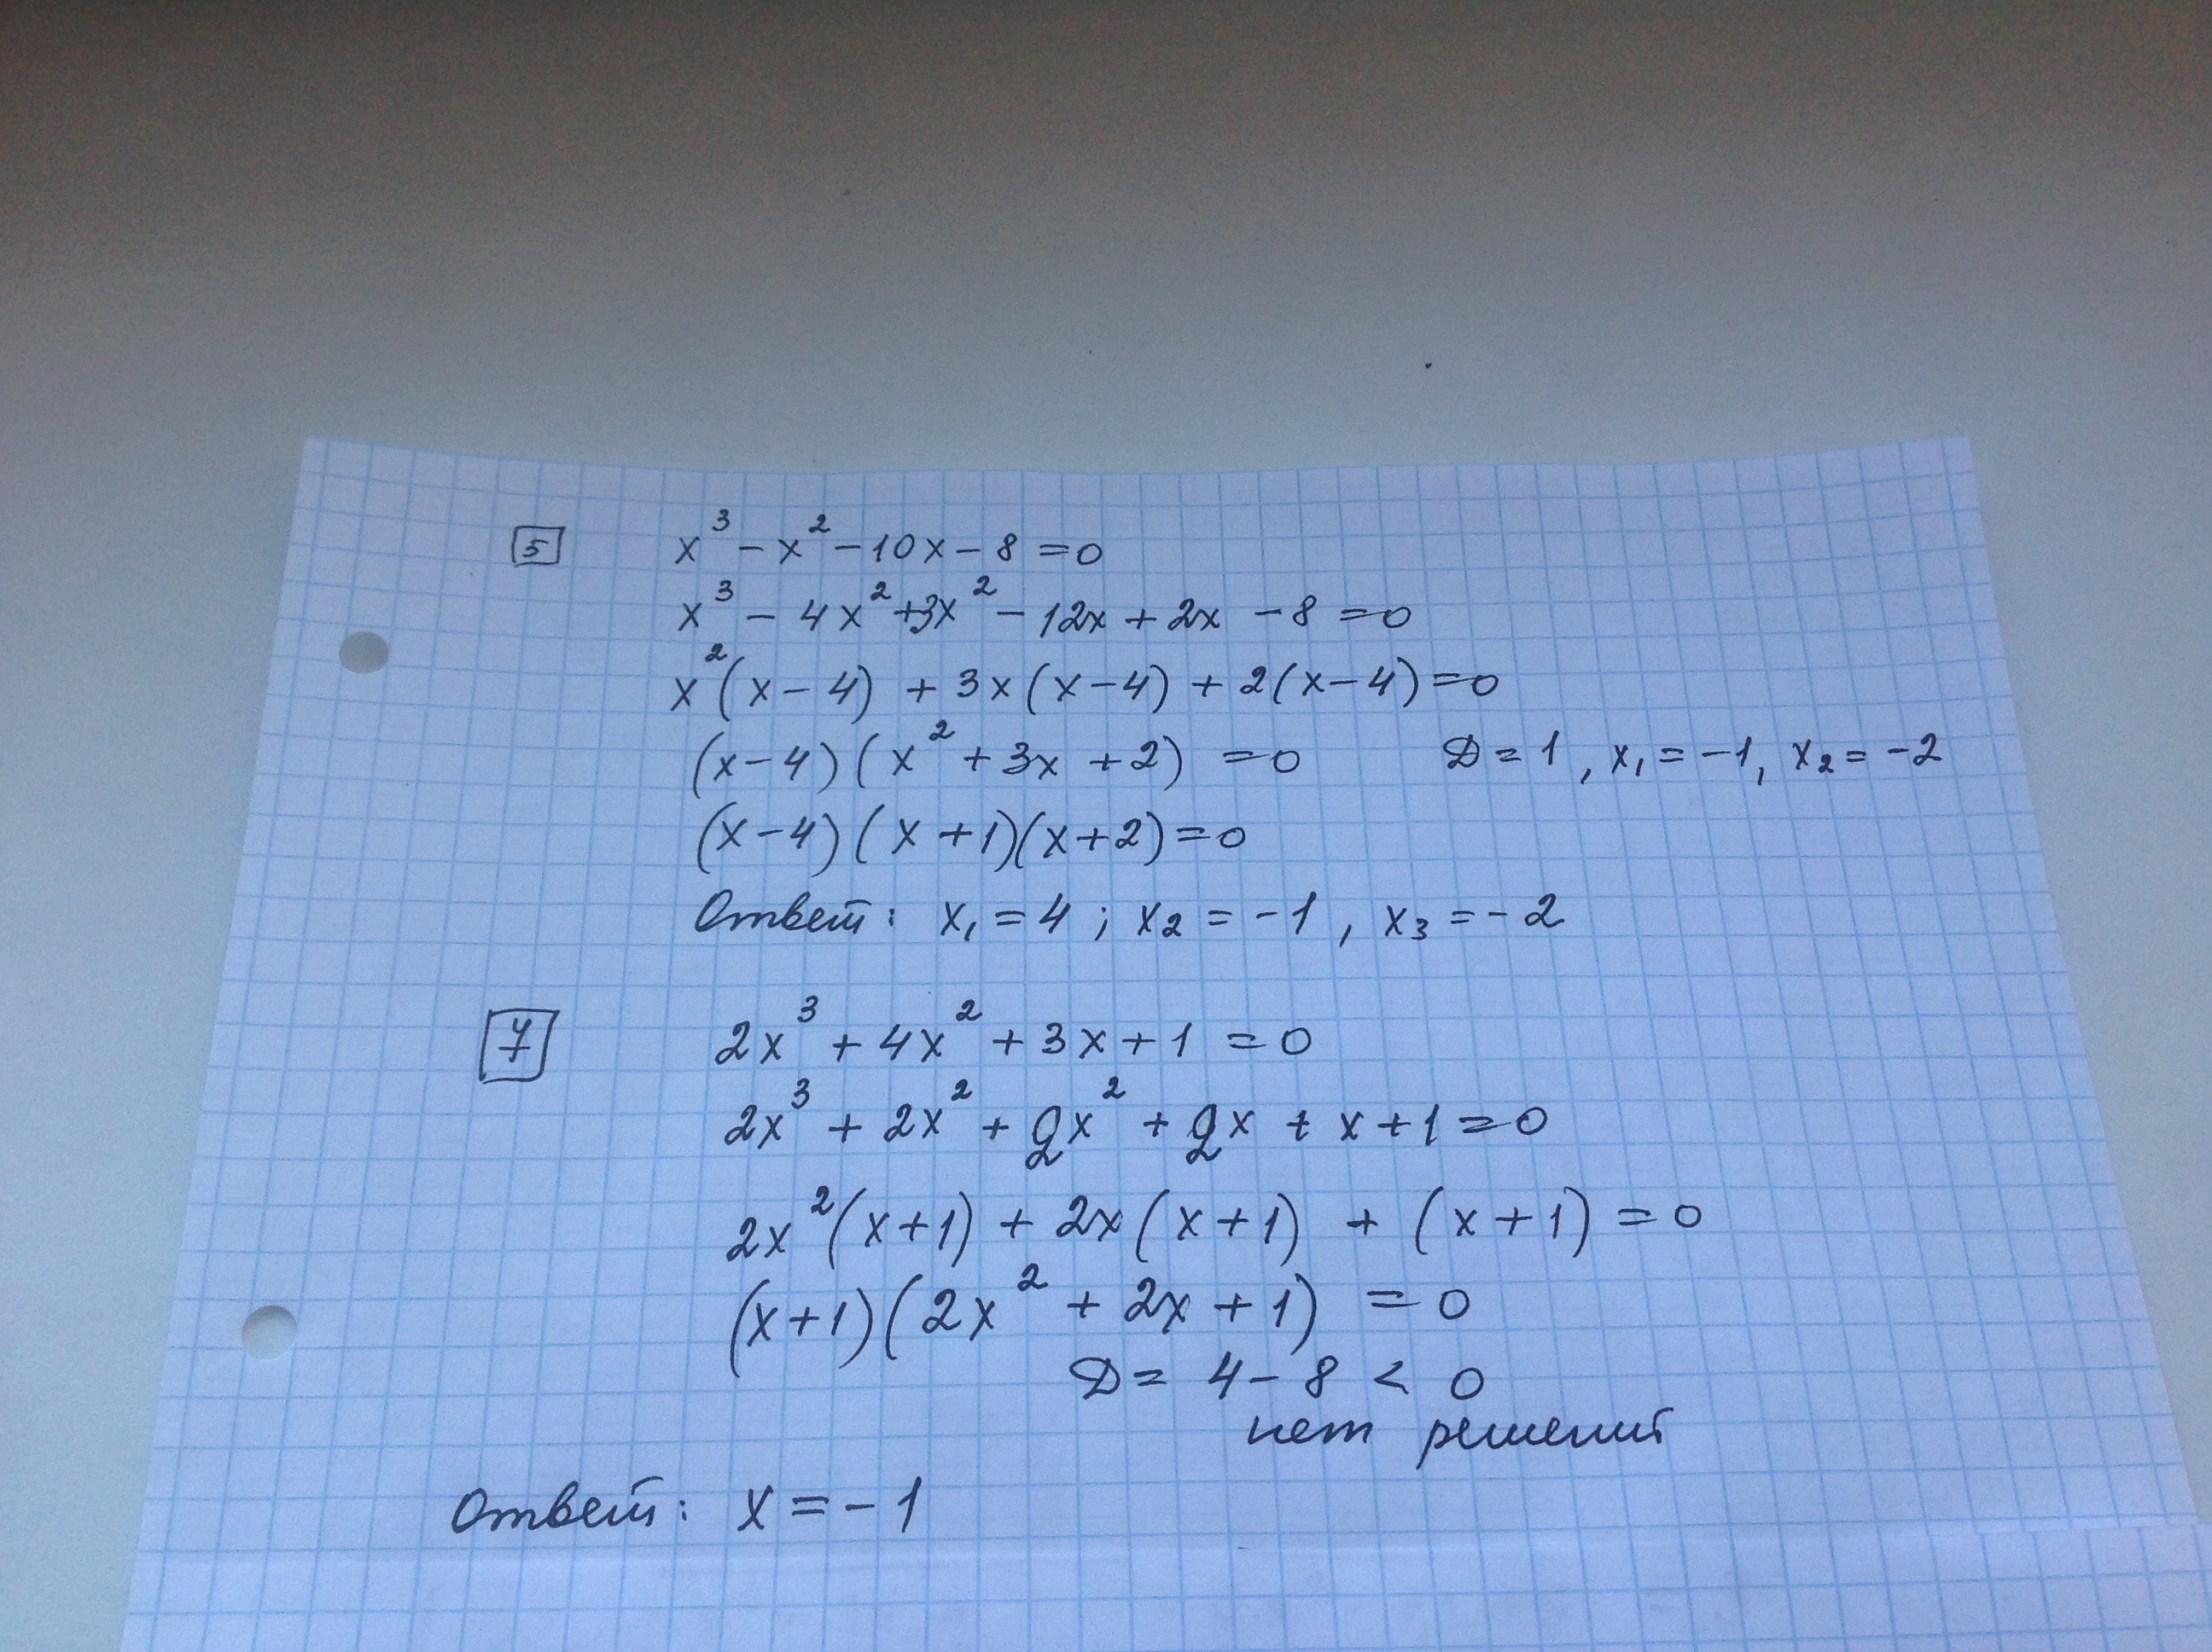 5 x³ − x² − 10x − 8 = 0
x³ − 4x² + 3x² − 12x + 2x − 8 = 0
x²(x − 4) + 3x(x − 4) + 2(x − 4) = 0
(x − 4)(x² + 3x + 2) = 0 D = 1, x₁ = −1, x₂ = −2
(x − 4)(x + 1)(x + 2) = 0
Ответ: x₁ = 4; x₂ = −1, x₃ = −2
7 2x³ + 4x² + 3x + 1 = 0
2x³ + 2x² + 2x² + 2x + x + 1 = 0
2x²(x + 1) + 2x(x + 1) + (x + 1) = 0
(x + 1)(2x² + 2x + 1) = 0
D = 4 − 8 < 0
нет решений
Ответ: x = −1